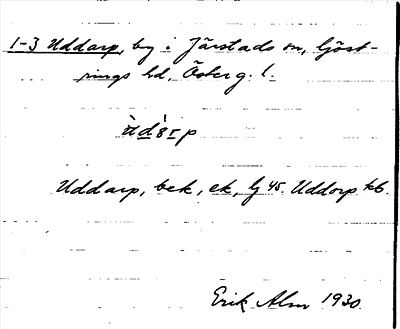 1-3 Uddarp, by i Järstads sn, Göst-
rings hd, Österg. l.
Uddarp, bek, ek, Gj 45. Uddorp kb.
Erik Alm 1930.